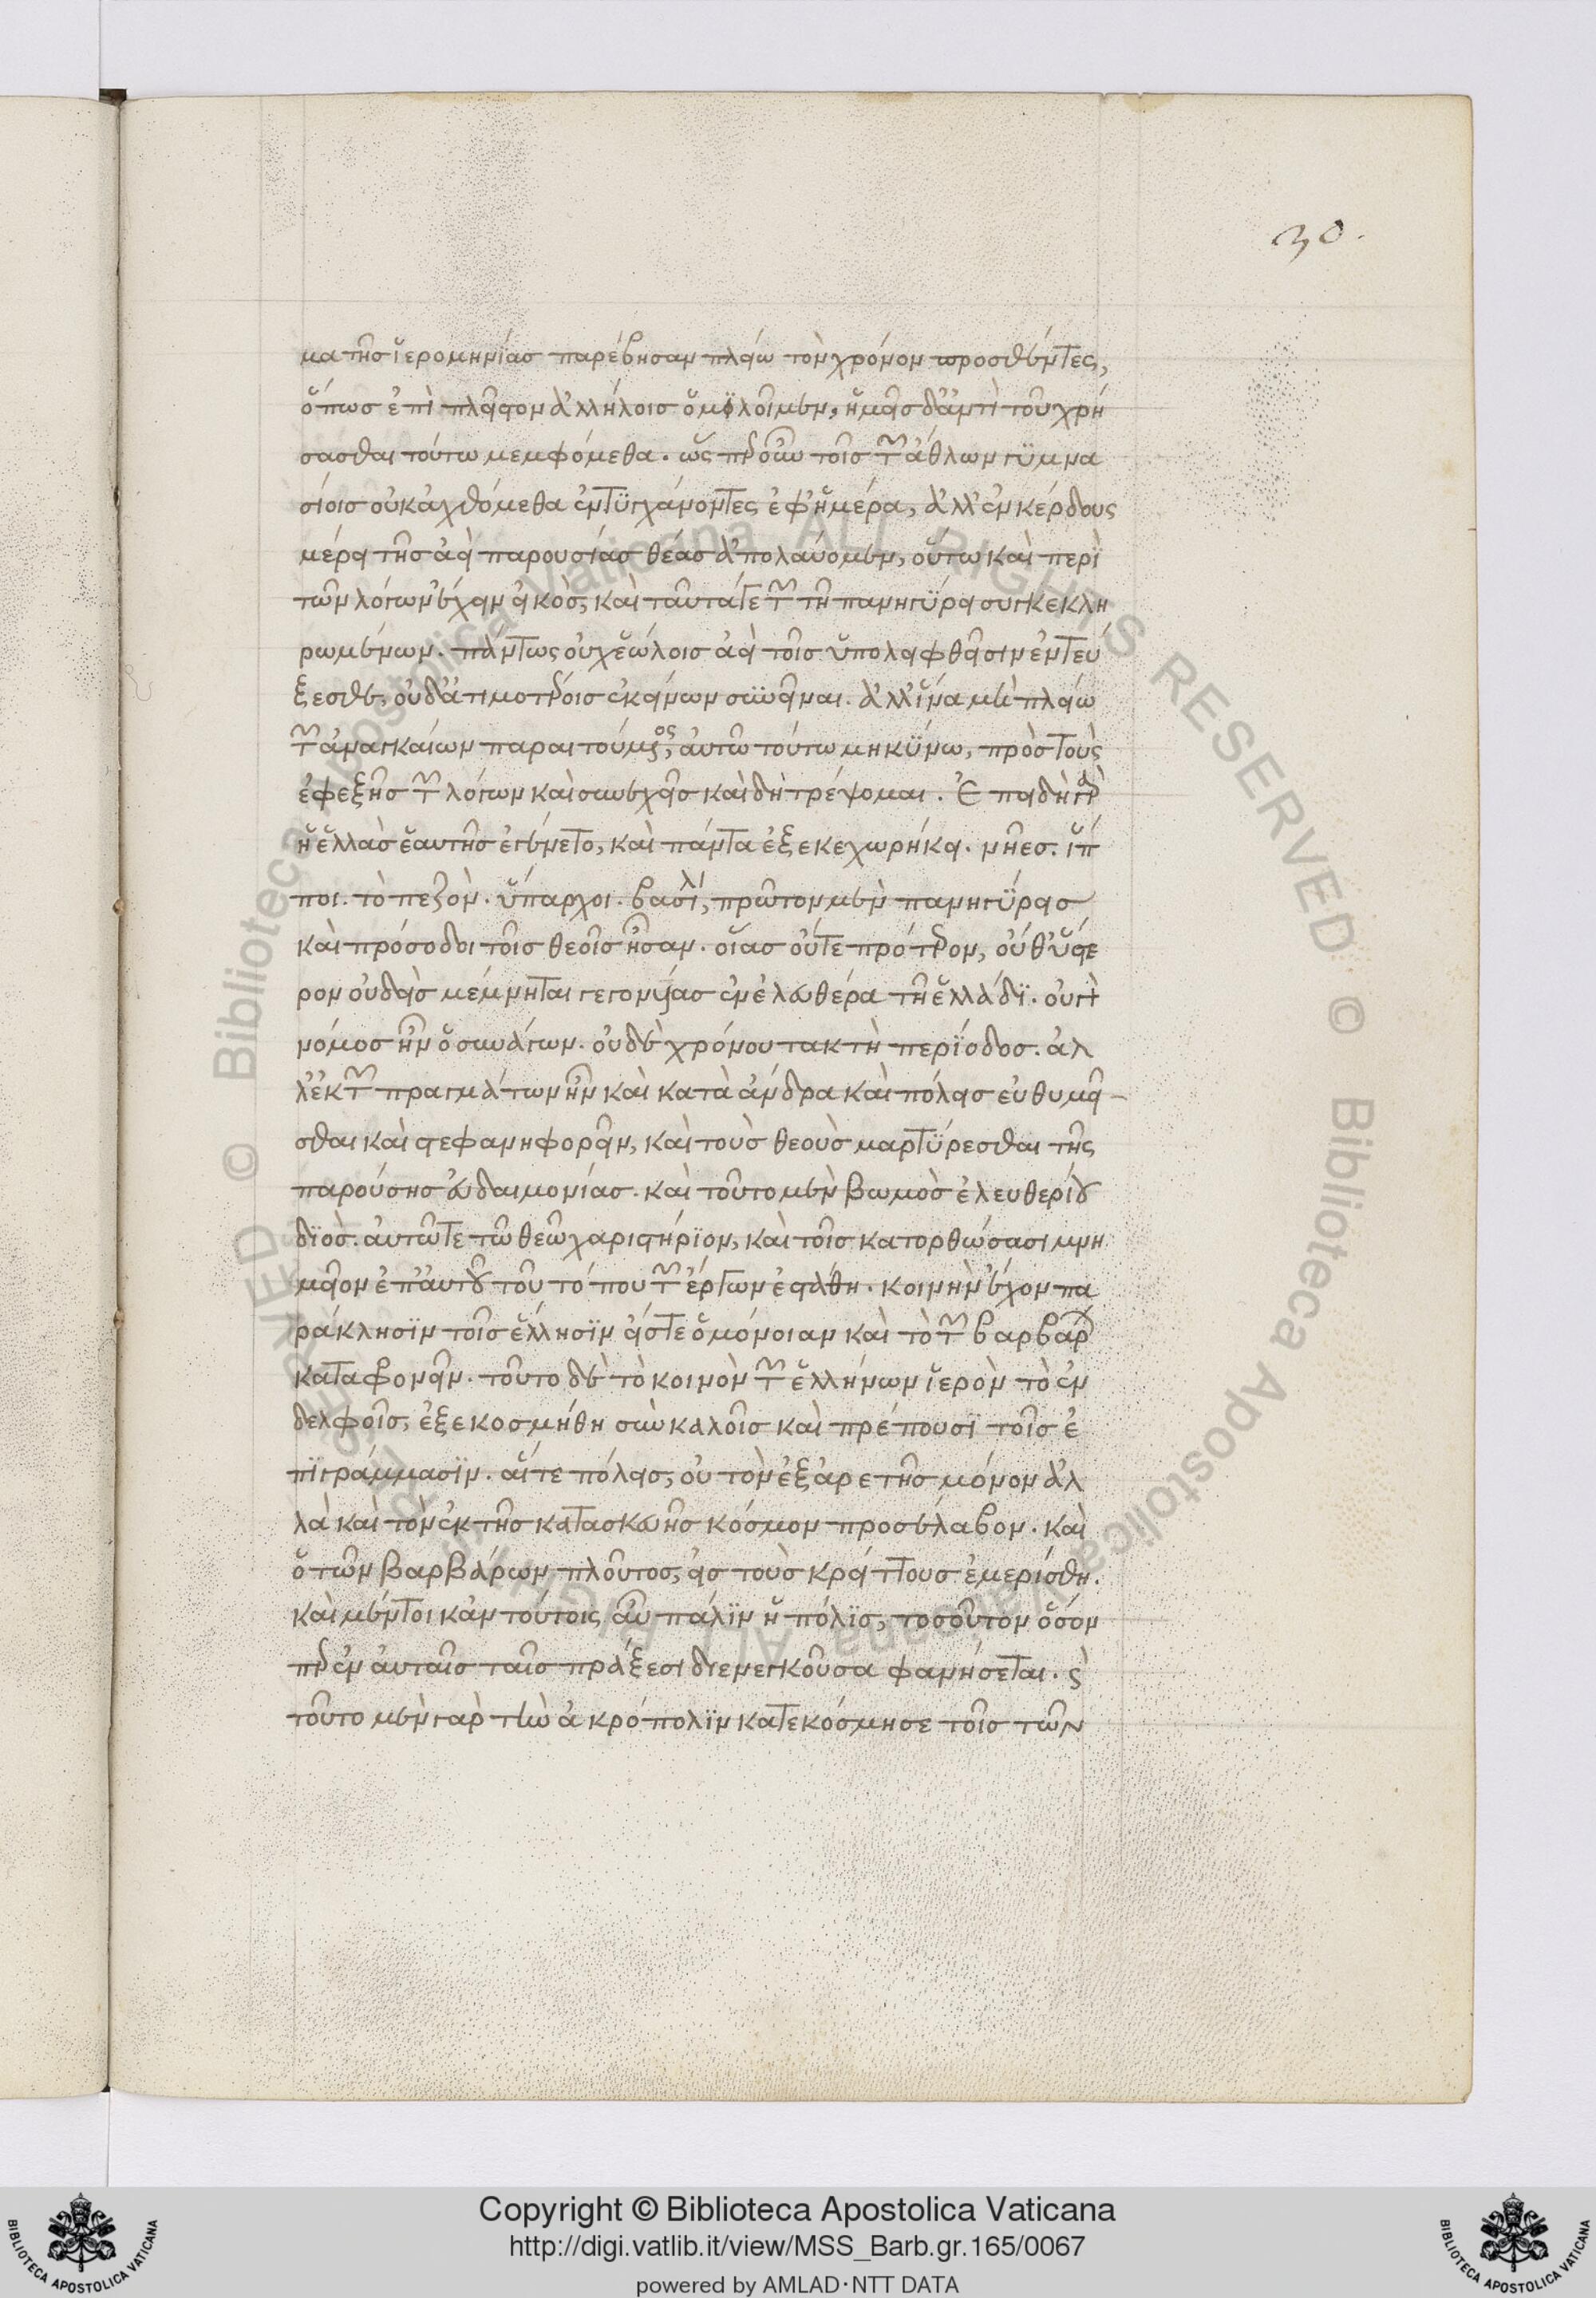 30.
μα τῆς ἱερομηνίας παρέβησαν πλείω τὸν χρόνον προσθέντες,
ὅπως ἐπὶ πλεῖστον ἀλλήλοις ὁμιλοῖμεν, ἡμᾶς δ' ἀντὶ τοῦ χρή
σασθαι τούτω μεμφόμεθα. ὥσπερ οὖν τοῖς τῶν ἄθλων γυμνα
σίοις οὐκ ἀχθόμεθα ἐντυγχάνοντες ἐφ' ἡμέρα, ἀλλ' ἐν κέρδους
μέρει τῆς ἀεὶ παρουσίας θέας ἀπολαύομεν, οὕτω καὶ περὶ
τῶν λόγων ἔχειν εἰκὸς, καὶ ταῦτά γε τῶν τῆ πανηγύρει συγκεκλη
ρωμένων. πάντως οὐχ ἑώλοις ἀεὶ τοῖς ὑπολειφθεῖσιν ἐντεύ
ξεσθε, οὐδ' ἀτιμοτέροις ἐκείνων συνεῖναι. ἀλλ' ἵνα μὴ πλείω
τῶν ἀναγκαίων παραιτούμενος, αὐτῶ τούτω μηκύνω, πρὸς τοὺς
ἐφεξῆς τῶν λόγων καὶ συνεχεῖς καὶ δὴ τρέψομαι. Ἐπειδὴ γὰρ
ἡ ἑλλὰς ἑαυτῆς ἐγένετο, καὶ πάντα ἐξεκεχωρήκει. νῆες. ἵπ
ποι. τὸ πεζὸν. ὕπαρχοι. βασιλεύς, πρῶτον μὲν πανηγύρεις
καὶ πρόσοδοι τοῖς θεοῖς ἦσαν. οἵας οὔτε πρότερον, οὔθ' ὕστε
ρον οὐδεὶς μέμνηται γεγονυίας ἐν ἐλευθέρα τῆ ἑλλάδι. οὐ γὰρ
νόμος ἦν ὁ συνάγων. οὐδὲ χρόνου τακτὴ περίοδος. ἀλ
λ' ἐκ τῶν πραγμάτων ἦν καὶ κατὰ ἄνδρα καὶ πόλεις εὐθυμεῖ-
σθαι καὶ στεφανηφορεῖν, καὶ τοὺς θεοὺς μαρτύρεσθαι τῆς
παρούσης εὐδαιμονίας. καὶ τοῦτο μὲν βωμὸς ἐλευθερίου
διὸς. αὐτῶ τε τῶ θεῶ χαριστήριον, καὶ τοῖς κατορθώσασι μνη
μεῖον ἐπ' αὐτοῦ τοῦ τόπου τῶν ἔργων ἐστάθη. κοινὴν ἔχον πα
ράκλησιν τοῖς ἕλλησιν εἴς τε ὁμόνοιαν καὶ τὸ τῶν βαρβάρων
καταφρονεῖν. τοῦτο δὲ τὸ κοινὸν τῶν ἑλλήνων ἱερὸν τὸ ἐν
δελφοῖς, ἐξεκοσμήθη σὺν καλοῖς καὶ πρέπουσι τοῖς ἐ
πιγράμμασιν. αἵ τε πόλεις, οὐ τὸν ἐξ ἀρετῆς μόνον ἀλ
λὰ καὶ τὸν ἐκ τῆς κατασκευῆς κόσμον προσέλαβον. καὶ
ὁ τῶν βαρβάρων πλοῦτος, εἰς τοὺς κρείττους ἐμερίσθη.
καὶ μέντοι κἀν τούτοις αὖ πάλιν ἡ πόλις, τοσοῦτον ὅσον
περ ἐν αὐταῖς ταῖς πράξεσι διενεγκοῦσα φανήσεται. καὶ
τοῦτο μὲν γὰρ τὴν ἀκρόπολιν κατεκόσμησε τοῖς τῶν
Copyright © Biblioteca Apostolica Vaticana
http://digi.vatlib.it/view/MSS_Barb.gr.165/0067
powered by AMLAD·NTT DATA